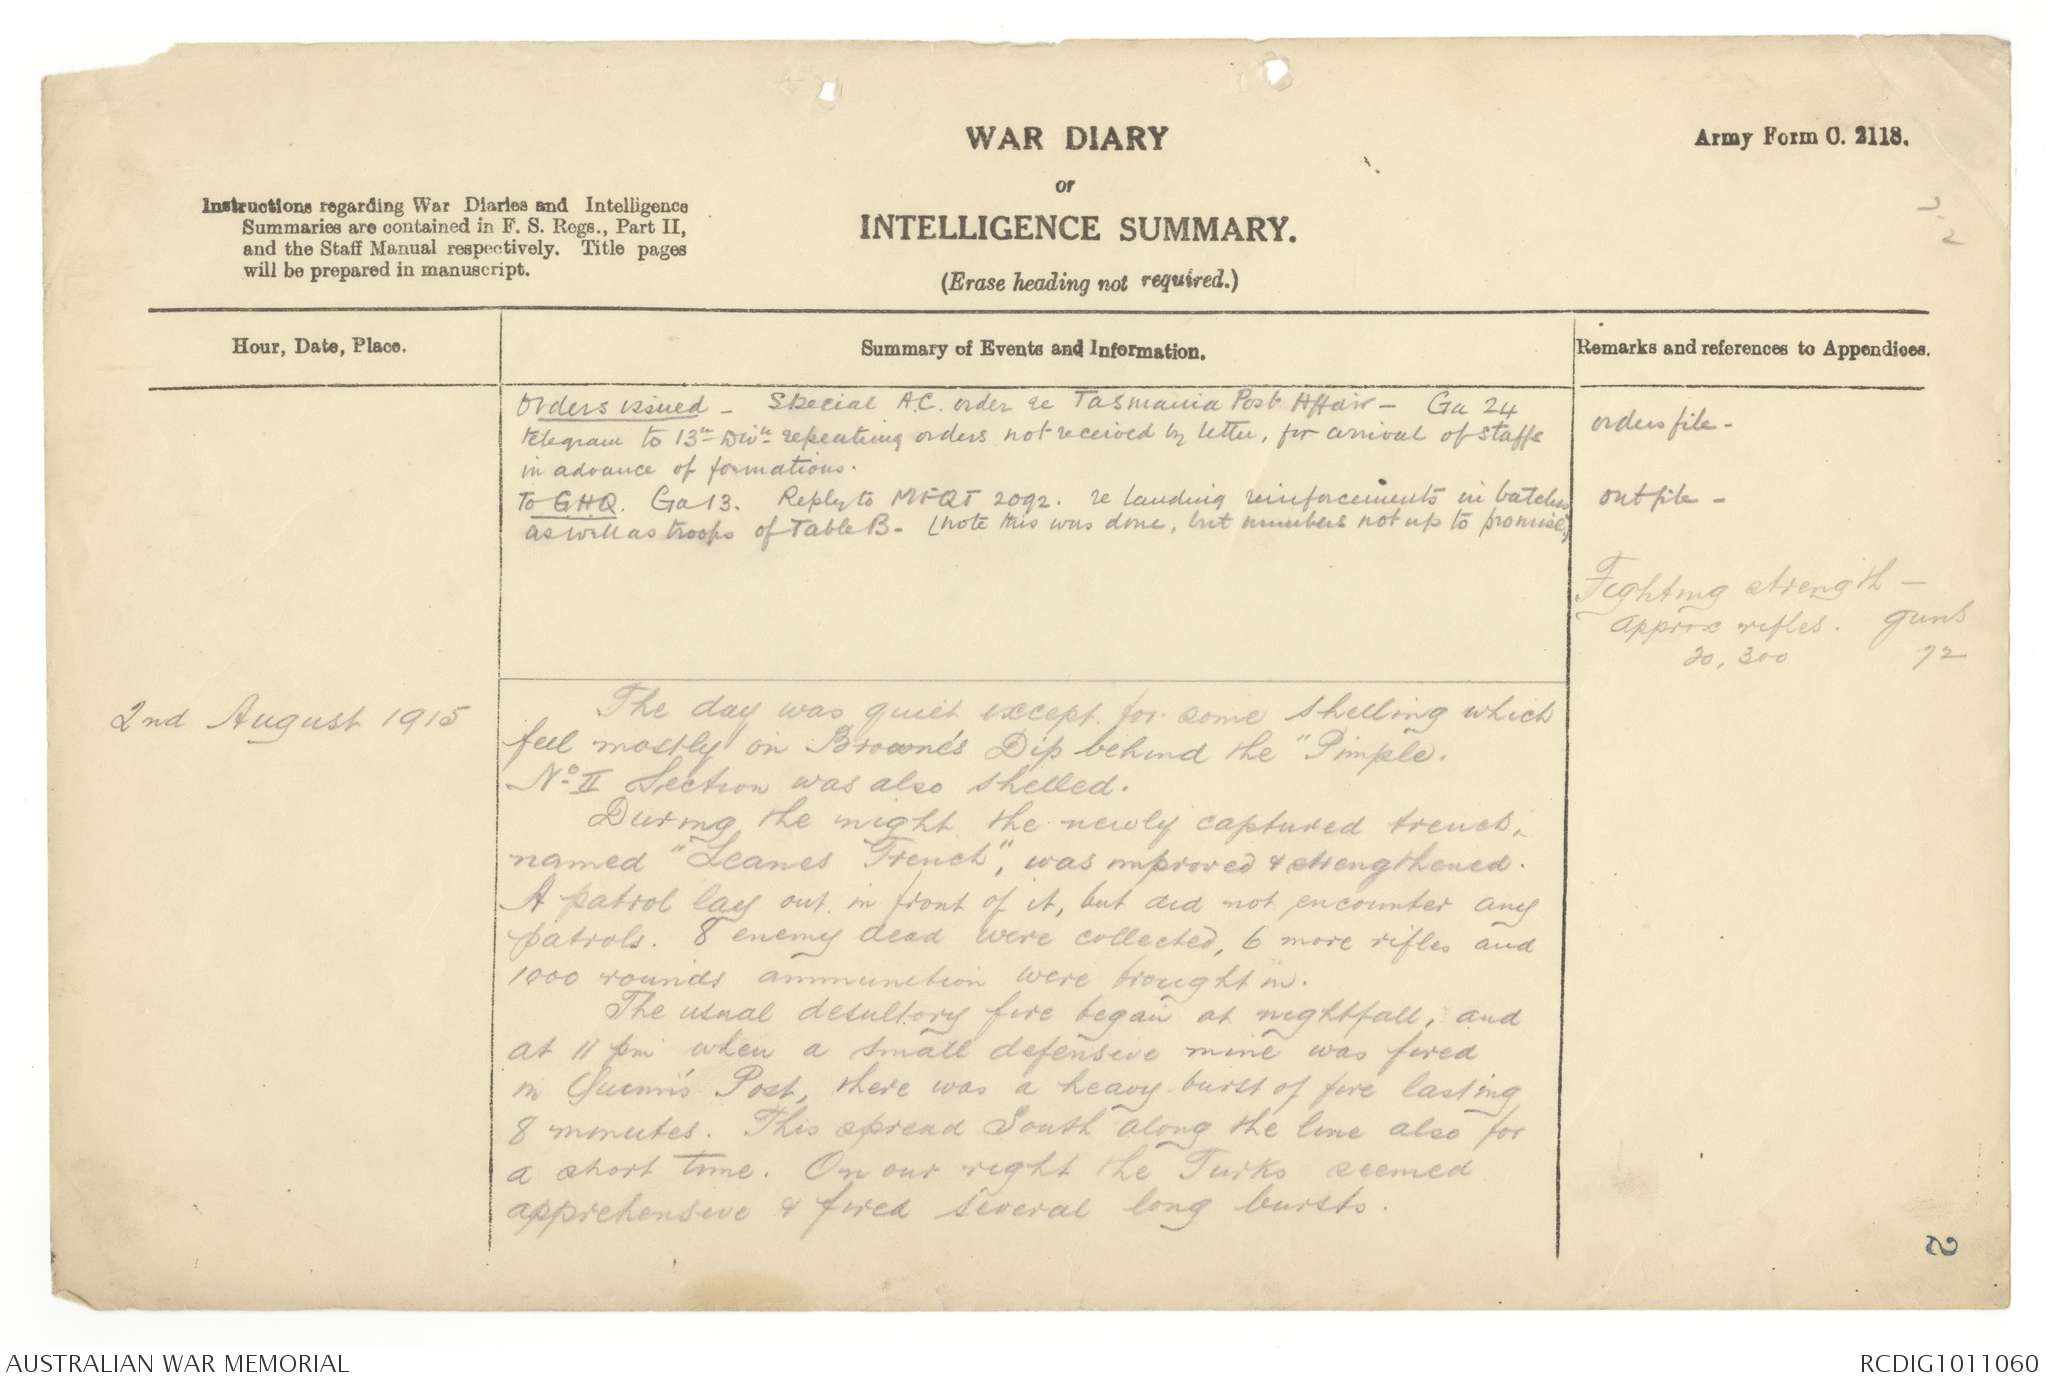 WAR DIARY
or
INTELLIGENCE SUMMARY.
(Erase heading not required.)
Army Form C. 2118.
Instructions regarding War Diaries and Intelligence
Summaries are contained in F. S. Regs., Part II,
and the Staff Manual respectively. Title pages
will be prepared in manuscript.
2
Hour, Date, Place.
Summary of Events and Information.
Remarks and references to Appendices.
Orders issued - Special A.C. order re Tasmania Post Affair - Ga 24
telegram to 13th Divn repeating orders not received by letter, for arrival of staffs
in advance of formations.
orders file -
To G.H.Q. Ga 13. Reply to MFQT 2092. re landing reinforcements in batches
as well as troops of Table B - (note this was done, but numbers not up to promise)
out file -
Fighting strength -
approx rifles. guns
20,300 72
2nd August 1915
The day was quiet except for some shelling which
fell mostly on Browne's Dip behind the "Pimple.
No II Section was also shelled.
During the night the newly captured trench,
named "Leanes Trench", was improved & strengthened.
A patrol lay out in front of it, but did not encounter any
patrols. 8 enemy dead were collected, 6 more rifles and
1000 rounds ammunition were brought in.
The usual desultory fire began at nightfall, and
at 11 pm when a small defensive mine was fired
in Quinn's Post, there was a heavy burst of fire lasting
8 minutes. This spread South along the line also for
a short time. On our right the Turks seemed
apprehensive & fired several long bursts.
AUSTRALIAN WAR MEMORIAL
RCDIG1011060